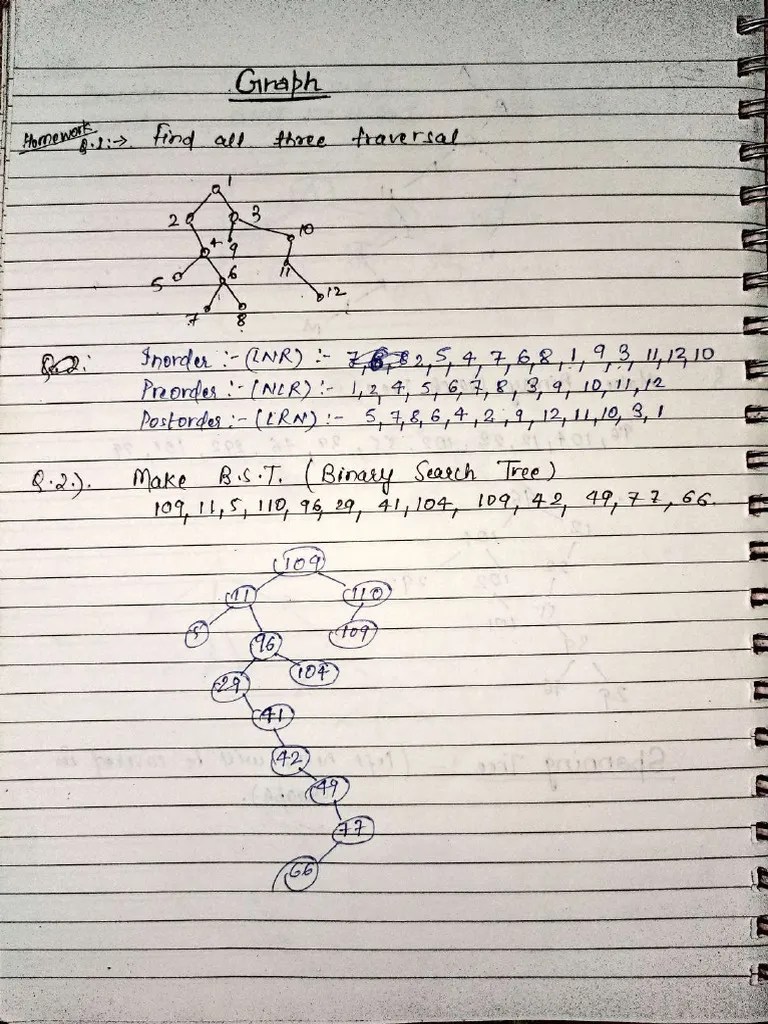 Graph
Homework
Q.1:→ Find all three traversal
1
2 3
4 9 10
5 6 11
7 8 12
Inorder :- (LNR) :- 7, 6, 8 2, 5, 4, 7, 6, 8, 1, 9, 3, 11, 12, 10
Preorder :- (NLR) :- 1, 2, 4, 5, 6, 7, 8, 3, 9, 10, 11, 12
Postorder :- (LRN) :- 5, 7, 8, 6, 4, 2, 9, 12, 11, 10, 3, 1
Q.2.). Make B.S.T. (Binary Search Tree)
109, 11, 5, 110, 96, 29, 41, 104, 109, 42, 49, 77, 66.
109
11 110
5 109
96
29 104
41
42
49
77
66